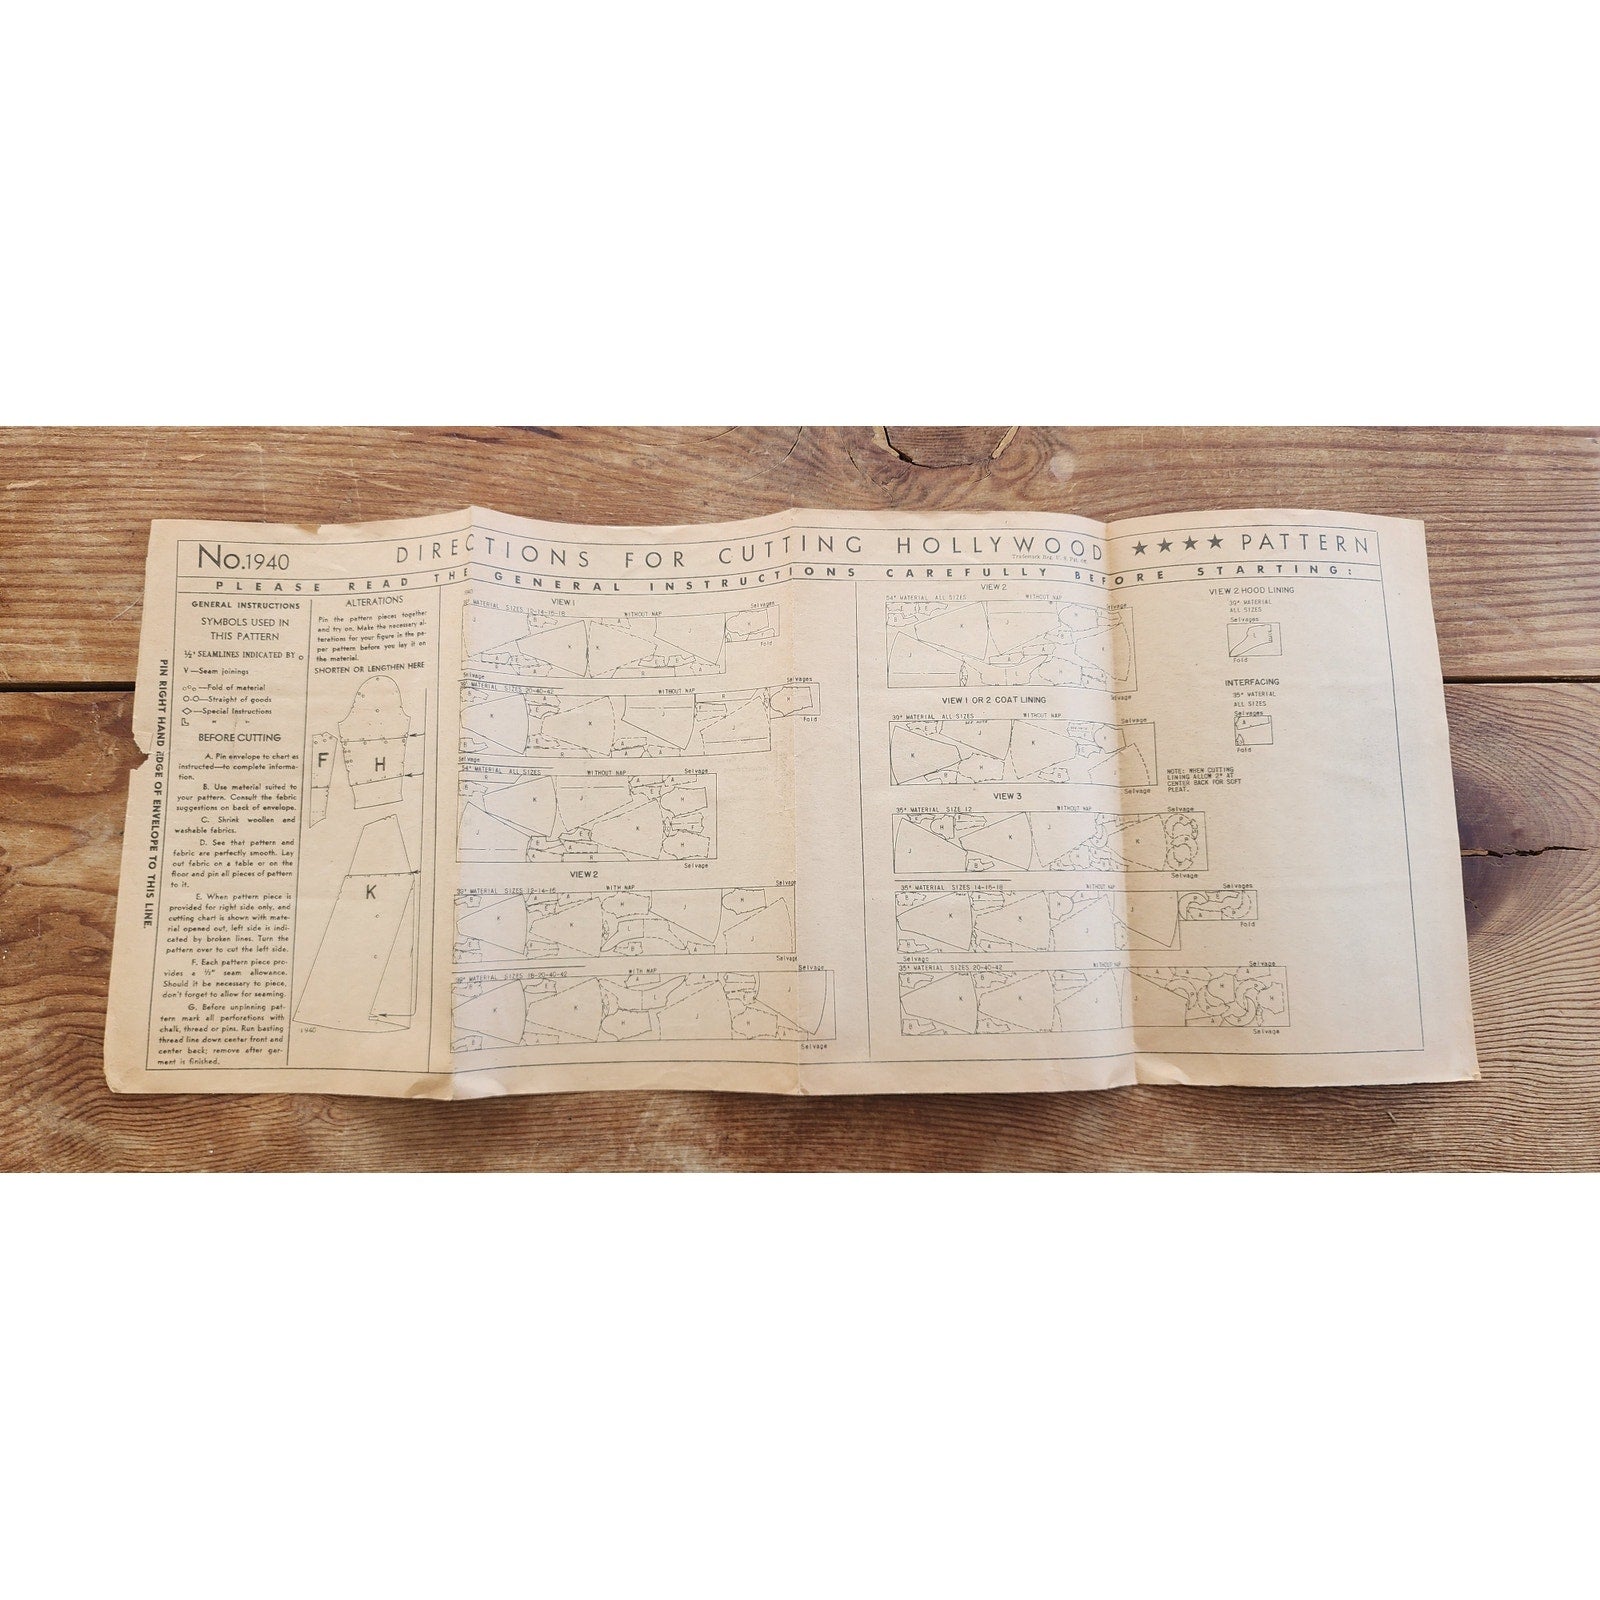 No.1940 DIRECTIONS FOR CUTTING HOLLYWOOD ★★★★ PATTERN
Trademark Reg. U. S. Pat. Off.
PLEASE READ THE GENERAL INSTRUCTIONS CAREFULLY BEFORE STARTING:
PIN RIGHT HAND EDGE OF ENVELOPE TO THIS LINE.
GENERAL INSTRUCTIONS
SYMBOLS USED IN
THIS PATTERN
½" SEAMLINES INDICATED BY o
V—Seam joinings
—Fold of material
O-O—Straight of goods
◇—Special Instructions
" "
BEFORE CUTTING
A. Pin envelope to chart as
instructed—to complete informa-
tion.
B. Use material suited to
your pattern. Consult the fabric
suggestions on back of envelope.
C. Shrink woollen and
washable fabrics.
D. See that pattern and
fabric are perfectly smooth. Lay
out fabric on a table or on the
floor and pin all pieces of pattern
to it.
E. When pattern piece is
provided for right side only, and
cutting chart is shown with mate-
rial opened out, left side is indi-
cated by broken lines. Turn the
pattern over to cut the left side.
F. Each pattern piece pro-
vides a ½" seam allowance.
Should it be necessary to piece,
don't forget to allow for seaming.
G. Before unpinning pat-
tern mark all perforations with
chalk, thread or pins. Run basting
thread line down center front and
center back; remove after gar-
ment is finished.
ALTERATIONS
Pin the pattern pieces together
and try on. Make the necessary al-
terations for your figure in the pa-
per pattern before you lay it on
the material.
SHORTEN OR LENGTHEN HERE
F
H
K
1940
VIEW 1
MATERIAL SIZES 12-14-16-18 WITHOUT NAP
Selvages
Fold
Selvage
MATERIAL SIZES 20-40-42 WITHOUT NAP
Selvages
Fold
Selvage
54" MATERIAL ALL SIZES WITHOUT NAP
Selvage
Selvage
VIEW 2
39" MATERIAL SIZES 12-14-16 WITH NAP
Selvage
Selvage
39" MATERIAL SIZES 18-20-40-42 WITH NAP
Selvage
Selvage
VIEW 2
54" MATERIAL ALL SIZES WITHOUT NAP
Selvage
Selvage
VIEW 1 OR 2 COAT LINING
39" MATERIAL ALL SIZES WITHOUT NAP
Selvage
Selvage
NOTE: WHEN CUTTING
LINING ALLOW 2" AT
CENTER BACK FOR SOFT
PLEAT.
VIEW 3
35" MATERIAL SIZE 12 WITHOUT NAP
Selvage
Selvage
35" MATERIAL SIZES 14-16-18 WITHOUT NAP
Selvages
Fold
Selvage
35" MATERIAL SIZES 20-40-42 WITHOUT NAP
Selvage
Selvage
VIEW 2 HOOD LINING
39" MATERIAL
ALL SIZES
Selvages
Fold
INTERFACING
35" MATERIAL
ALL SIZES
Selvages
Fold